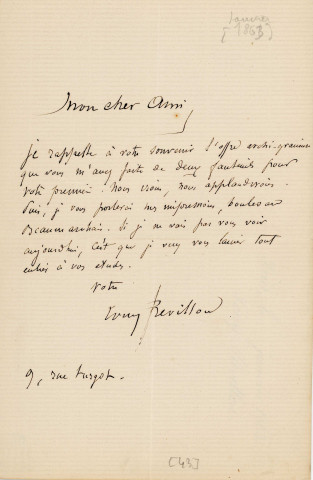 Mon cher Ami,
Je rappelle à votre souvenir l'offre archi-gracieuse
que vous m'avez faite de deux fauteuils pour
votre première. Nous irons, nous applaudirons.
Puis, je vous porterai mes impressions, boulevard
Beaumarchais. Si je ne vais pas vous voir
aujourd'hui, c'est que je veux vous laisser tout
entier à vos études.
Votre
Tony Révillon
9, rue Turgot.
[43]